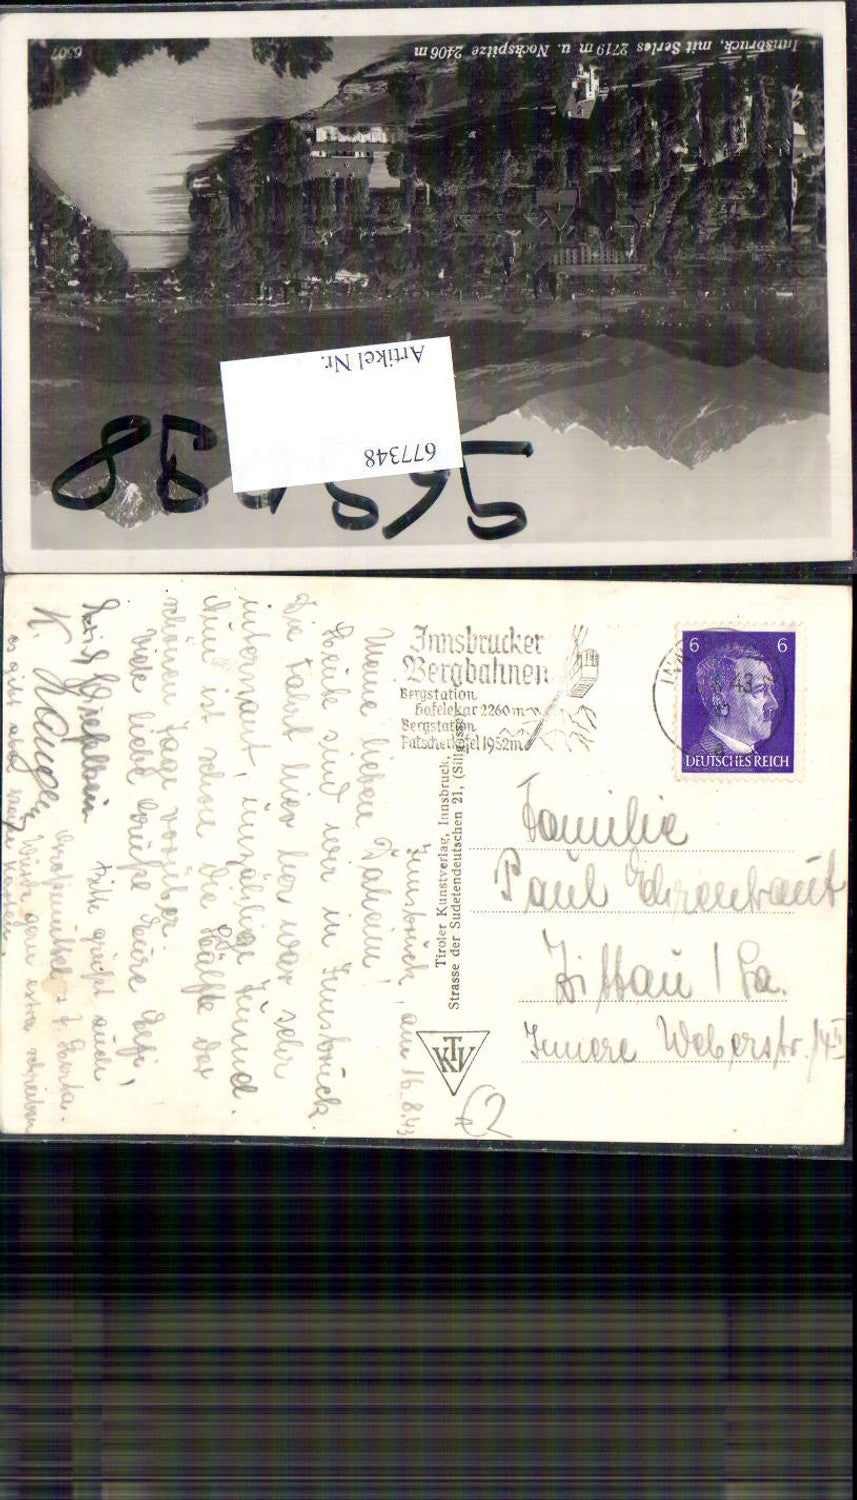 Innsbruck, mit Serles 2719 m u. Nockspitze 2406 m
6507
Artikel Nr.
677348
Innsbrucker
Bergbahnen
Bergstation
Hafelekar 2260 m
Bergstation
Patscherkofel 1952 m
6 6
43
DEUTSCHES REICH
Tiroler Kunstverlag, Innsbruck,
Strasse der Sudetendeutschen 21, (Sillgasse)
KTV
Familie
Paul Ehrentraut
Zittau / Sa.
Innere Weberstr.
Innsbruck, am 16.8.43
Meine lieben Daheim!
Heute sind wir in Innsbruck.
Die Fahrt hier her war sehr
interessant, unzählige Tunnel.
Nun ist schon die Hälfte der
schönen Tage vorüber.
Viele liebe Grüße Eure
Bitte grüßt auch
Großmuttel u. T. Herta.
K.
würde gern extra schreiben
es gibt aber keine Karten